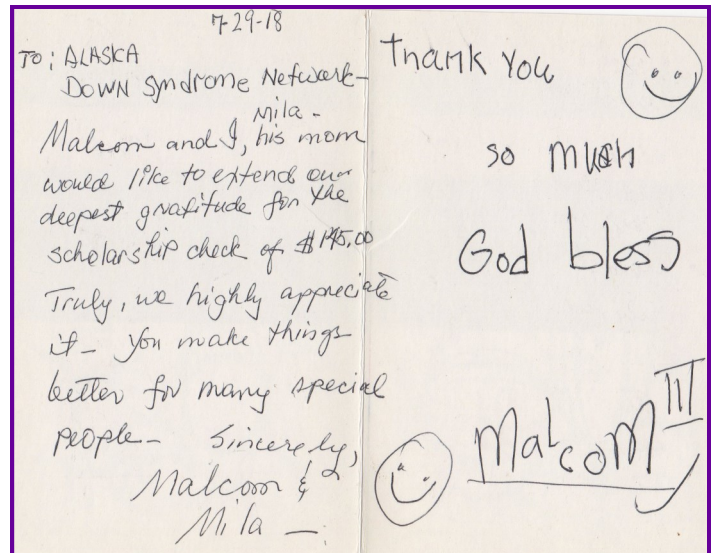 7-29-18
TO: ALASKA
DOWN Syndrome Network-
Mila -
Malcom and I, his mom
would like to extend our
deepest gratitude for the
scholarship check of $195.00
Truly, we highly appreciate
it - you make things
better for many special
people - Sincerely,
Malcom &
Mila -
Thank You
so much
God bless
Malcom III